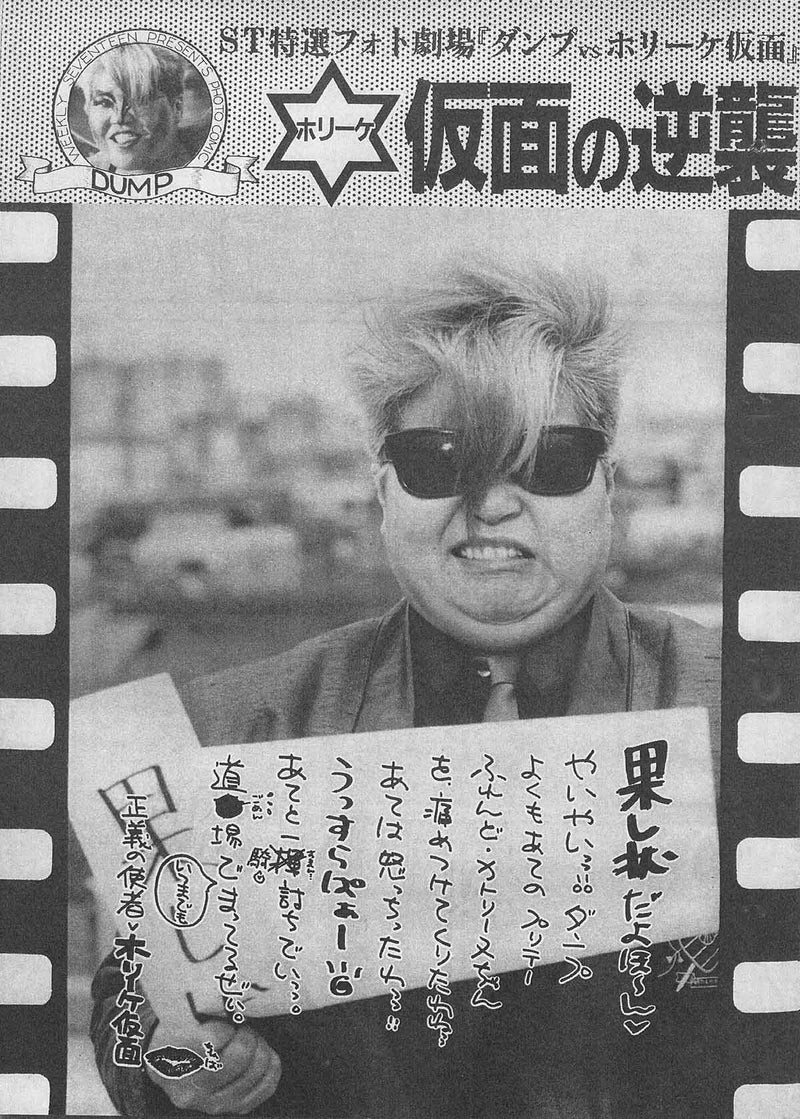 ST特選フォト劇場『ダンプvsホリーケ仮面』
WEEKLY SEVENTEEN PRESENTS PHOTO COMIC
DUMP
ホリーケ
仮面の逆襲
果し状だよほ〜ん♡
やいやいっ!! ダンプ
よくもあてのプリテー
ふれんど・カトリーヌちゃん
を、痛めつけてくりたわね
あては怒っちったわっ!!
うっすらぱぁー!!
あてと一騎討ちでいっ。
道場でまってるぜい。
いつまでも
正義の使者♡ホリーケ仮面